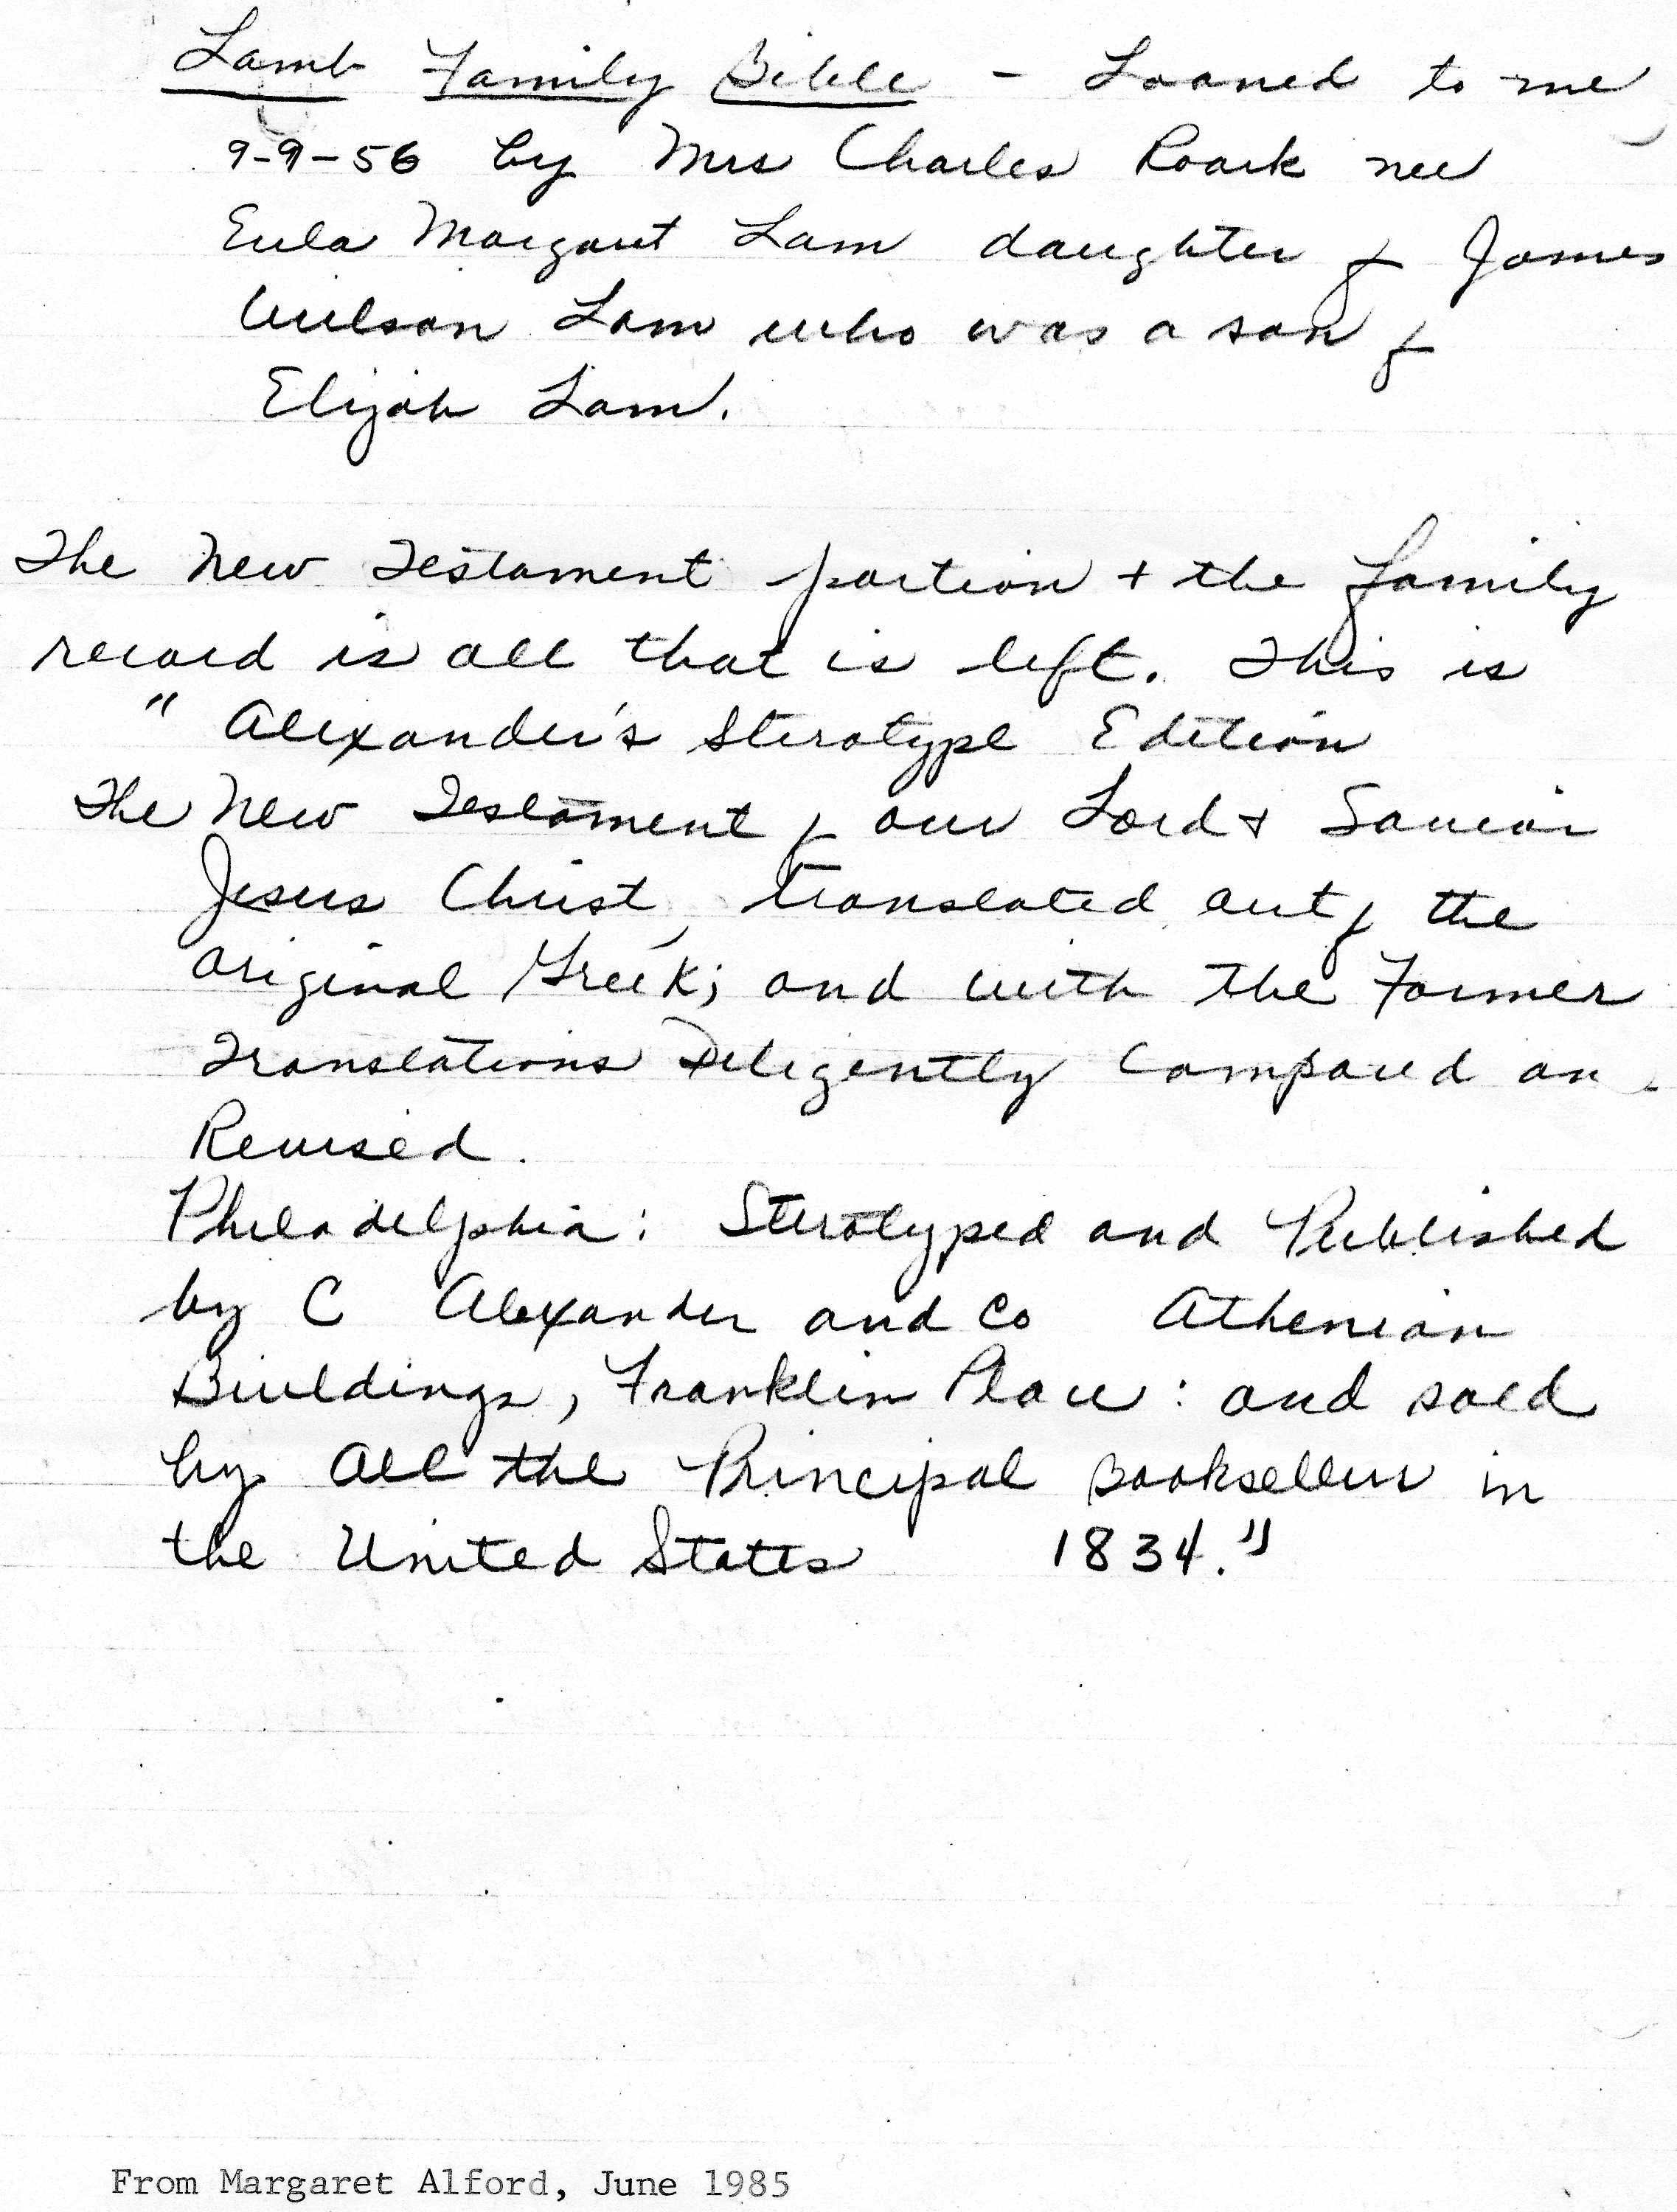 Lamb Family Bible - Loaned to me
9-9-56 by Mrs Charles Roark nee
Eula Margaret Lam daughter of James
Wilson Lam who was a son of
Elijah Lam.
The New Testament portion + the family
record is all that is left. This is
" Alexander's Sterotype Edition
The New Testament of our Lord + Savior
Jesus Christ, translated out of the
original Greek; and with the Former
Translations Diligently Compared an
Revised.
Philadelphia: Sterotyped and Published
by C Alexander and Co Athenian
Buildings, Franklin Place: and sold
by all the Principal Booksellers in
the United States 1834."
From Margaret Alford, June 1985